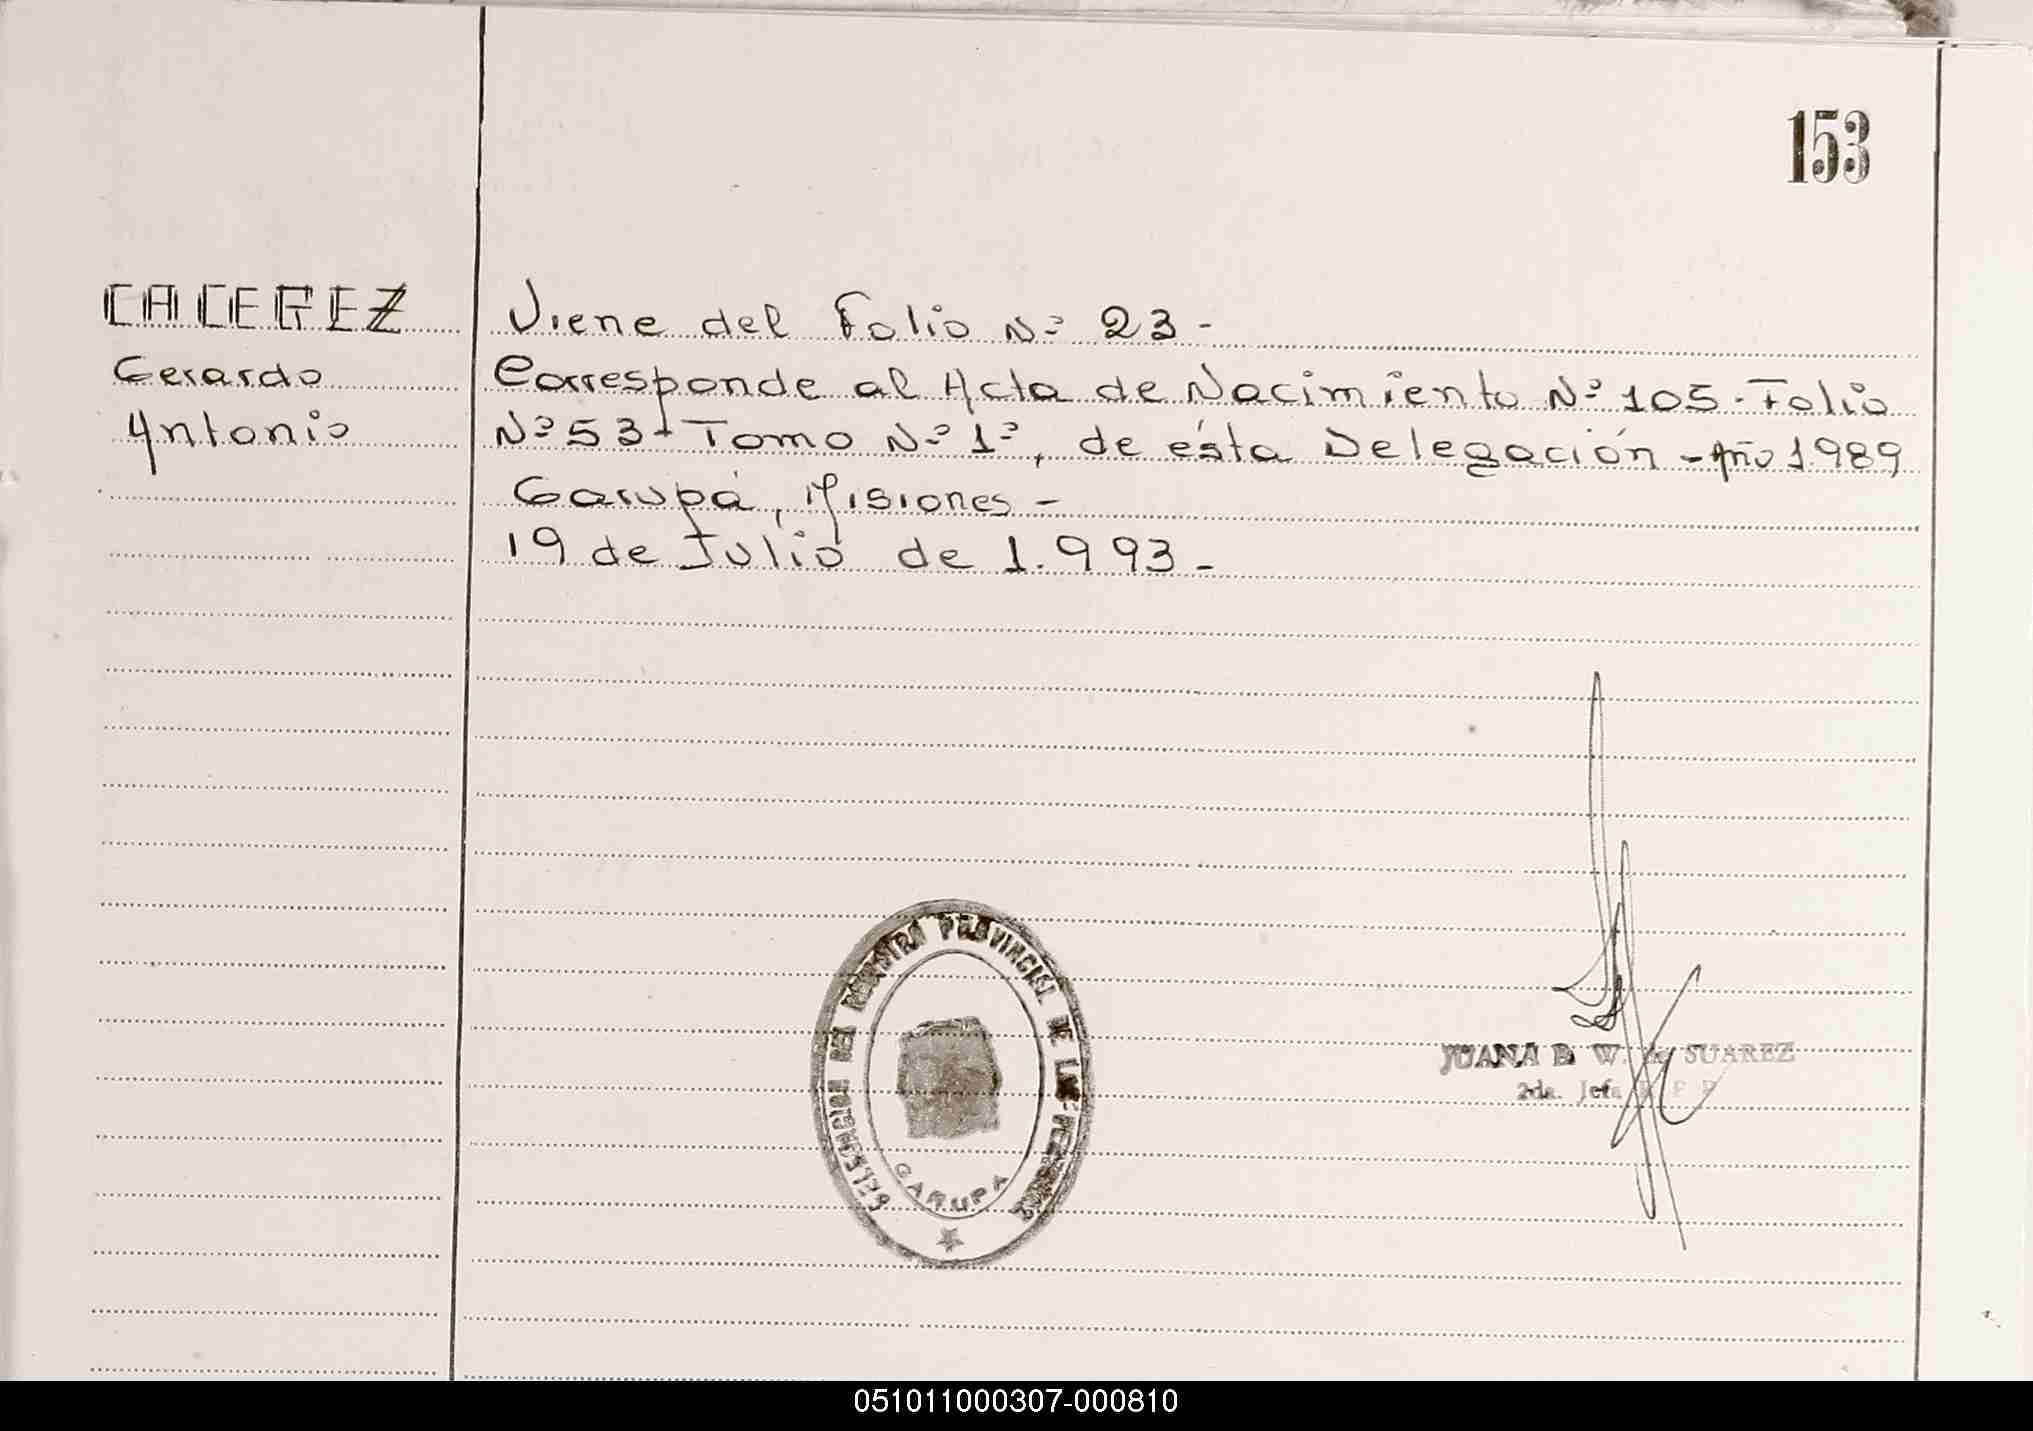 153
CACEREZ
Gerardo
Antonio
Viene del Folio Nº 23 -
Corresponde al Acta de Nacimiento Nº 105 - Folio
Nº 53 - Tomo Nº 1º, de ésta Delegación - Año 1.989
Garupá, Misiones -
19 de Julio de 1.993 -
DELEGACION DEL REGISTRO PROVINCIAL DE LAS PERSONAS
GARUPA
JUANA B W. de SUAREZ
2da. Jefa
051011000307-000810